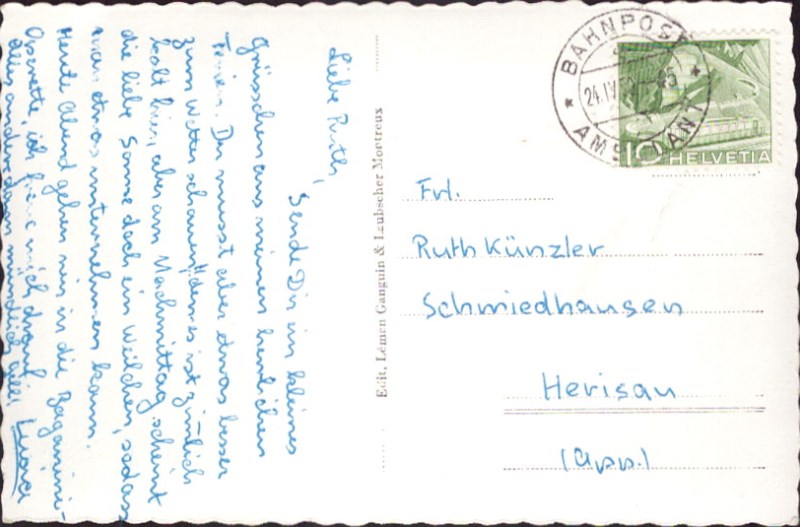 Liebe Ruth,
Sende Dir ein kleines
Grüsschen aus meinen herrlichen
Ferien. Du musst aber etwas besser
zum Wetter schauen, denn es ist ziemlich
kalt hier, aber am Nachmittag scheint
die liebe Sonne doch ein Weilchen, sodass
man etwas unternehmen kann.
Heute Abend gehen wir in die Paganini-
Operette, ich freue mich drauf.
Alles andere dann mündlich
Edit. Lémen Ganguin & Laubscher Montreux
BAHNPOST
24.IV
AMBULANT
10 HELVETIA
Frl.
Ruth Künzler
Schmiedhausen
Herisau
(App.)